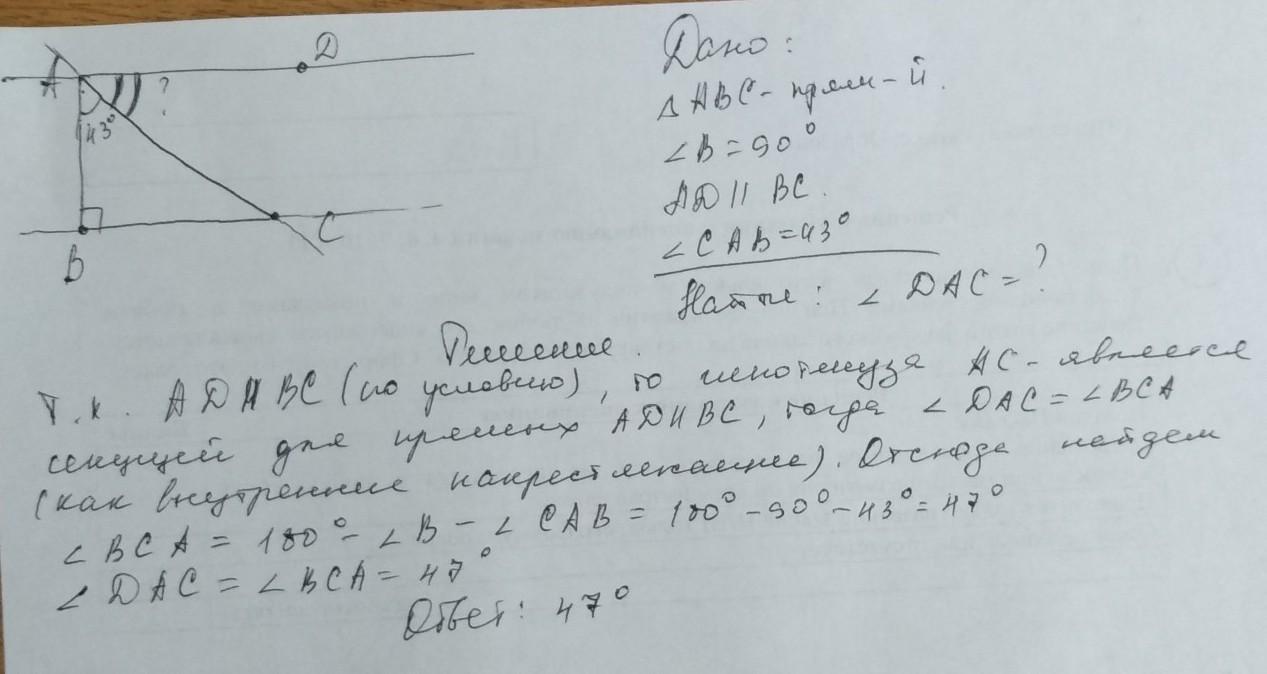 A
D
?
43°
B
C
Дано:
△ ABC - прям-й.
∠B = 90°
AD || BC.
∠CAB = 43°
Найти: ∠ DAC = ?
Решение.
Т.к. AD || BC (по условию), то гипотенуза AC - является
секущей для прямых AD || BC, тогда ∠ DAC = ∠BCA
(как внутренние накрестлежащие). Отсюда найдем
∠ BCA = 180° - ∠ B - ∠ CAB = 180° - 90° - 43° = 47°
∠ DAC = ∠ BCA = 47°
Ответ: 47°